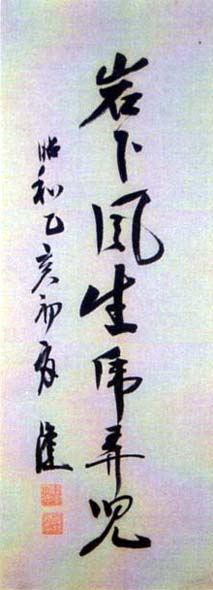 岩下風生虎弄児
昭和乙亥初夏